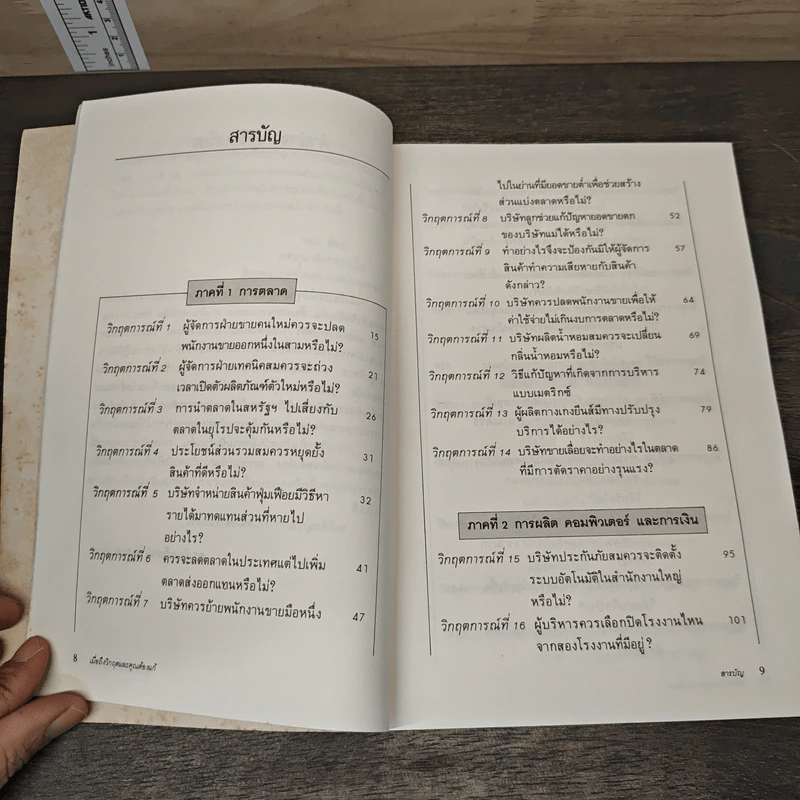 สารบัญ
ภาคที่ 1 การตลาด
วิกฤตการณ์ที่ 1 ผู้จัดการฝ่ายขายคนใหม่ควรจะปลด 15
พนักงานขายออกหนึ่งในสามหรือไม่?
วิกฤตการณ์ที่ 2 ผู้จัดการฝ่ายเทคนิคสมควรจะถ่วง 21
เวลาเปิดตัวผลิตภัณฑ์ตัวใหม่หรือไม่?
วิกฤตการณ์ที่ 3 การนำตลาดในสหรัฐฯ ไปเสี่ยงกับ 26
ตลาดในยุโรปจะคุ้มกันหรือไม่?
วิกฤตการณ์ที่ 4 ประโยชน์ส่วนรวมสมควรหยุดยั้ง 31
สินค้าที่ดีหรือไม่?
วิกฤตการณ์ที่ 5 บริษัทจำหน่ายสินค้าฟุ่มเฟือยมีวิธีหา 32
รายได้มาทดแทนส่วนที่หายไป
อย่างไร?
วิกฤตการณ์ที่ 6 ควรจะลดตลาดในประเทศแต่ไปเพิ่ม 41
ตลาดส่งออกแทนหรือไม่?
วิกฤตการณ์ที่ 7 บริษัทควรย้ายพนักงานขายมือหนึ่ง 47
8 เมื่อถึงวิกฤตและคุณต้องแก้
ไปในย่านที่มียอดขายต่ำเพื่อช่วยสร้าง
ส่วนแบ่งตลาดหรือไม่?
วิกฤตการณ์ที่ 8 บริษัทลูกช่วยแก้ปัญหายอดขายตก 52
ของบริษัทแม่ได้หรือไม่?
วิกฤตการณ์ที่ 9 ทำอย่างไรจึงจะป้องกันมิให้ผู้จัดการ 57
สินค้าทำความเสียหายกับสินค้า
ดังกล่าว?
วิกฤตการณ์ที่ 10 บริษัทควรปลดพนักงานขายเพื่อให้ 64
ค่าใช้จ่ายไม่เกินงบการตลาดหรือไม่?
วิกฤตการณ์ที่ 11 บริษัทผลิตน้ำหอมสมควรจะเปลี่ยน 69
กลิ่นน้ำหอมหรือไม่?
วิกฤตการณ์ที่ 12 วิธีแก้ปัญหาที่เกิดจากการบริหาร 74
แบบเมตริกซ์
วิกฤตการณ์ที่ 13 ผู้ผลิตกางเกงยีนส์มีทางปรับปรุง 79
บริการได้อย่างไร?
วิกฤตการณ์ที่ 14 บริษัทขายเลื่อยจะทำอย่างไรในตลาด 86
ที่มีการตัดราคาอย่างรุนแรง?
ภาคที่ 2 การผลิต คอมพิวเตอร์ และการเงิน
วิกฤตการณ์ที่ 15 บริษัทประกันภัยสมควรจะติดตั้ง 95
ระบบอัตโนมัติในสำนักงานใหญ่
หรือไม่?
วิกฤตการณ์ที่ 16 ผู้บริหารควรเลือกปิดโรงงานไหน 101
จากสองโรงงานที่มีอยู่?
สารบัญ 9